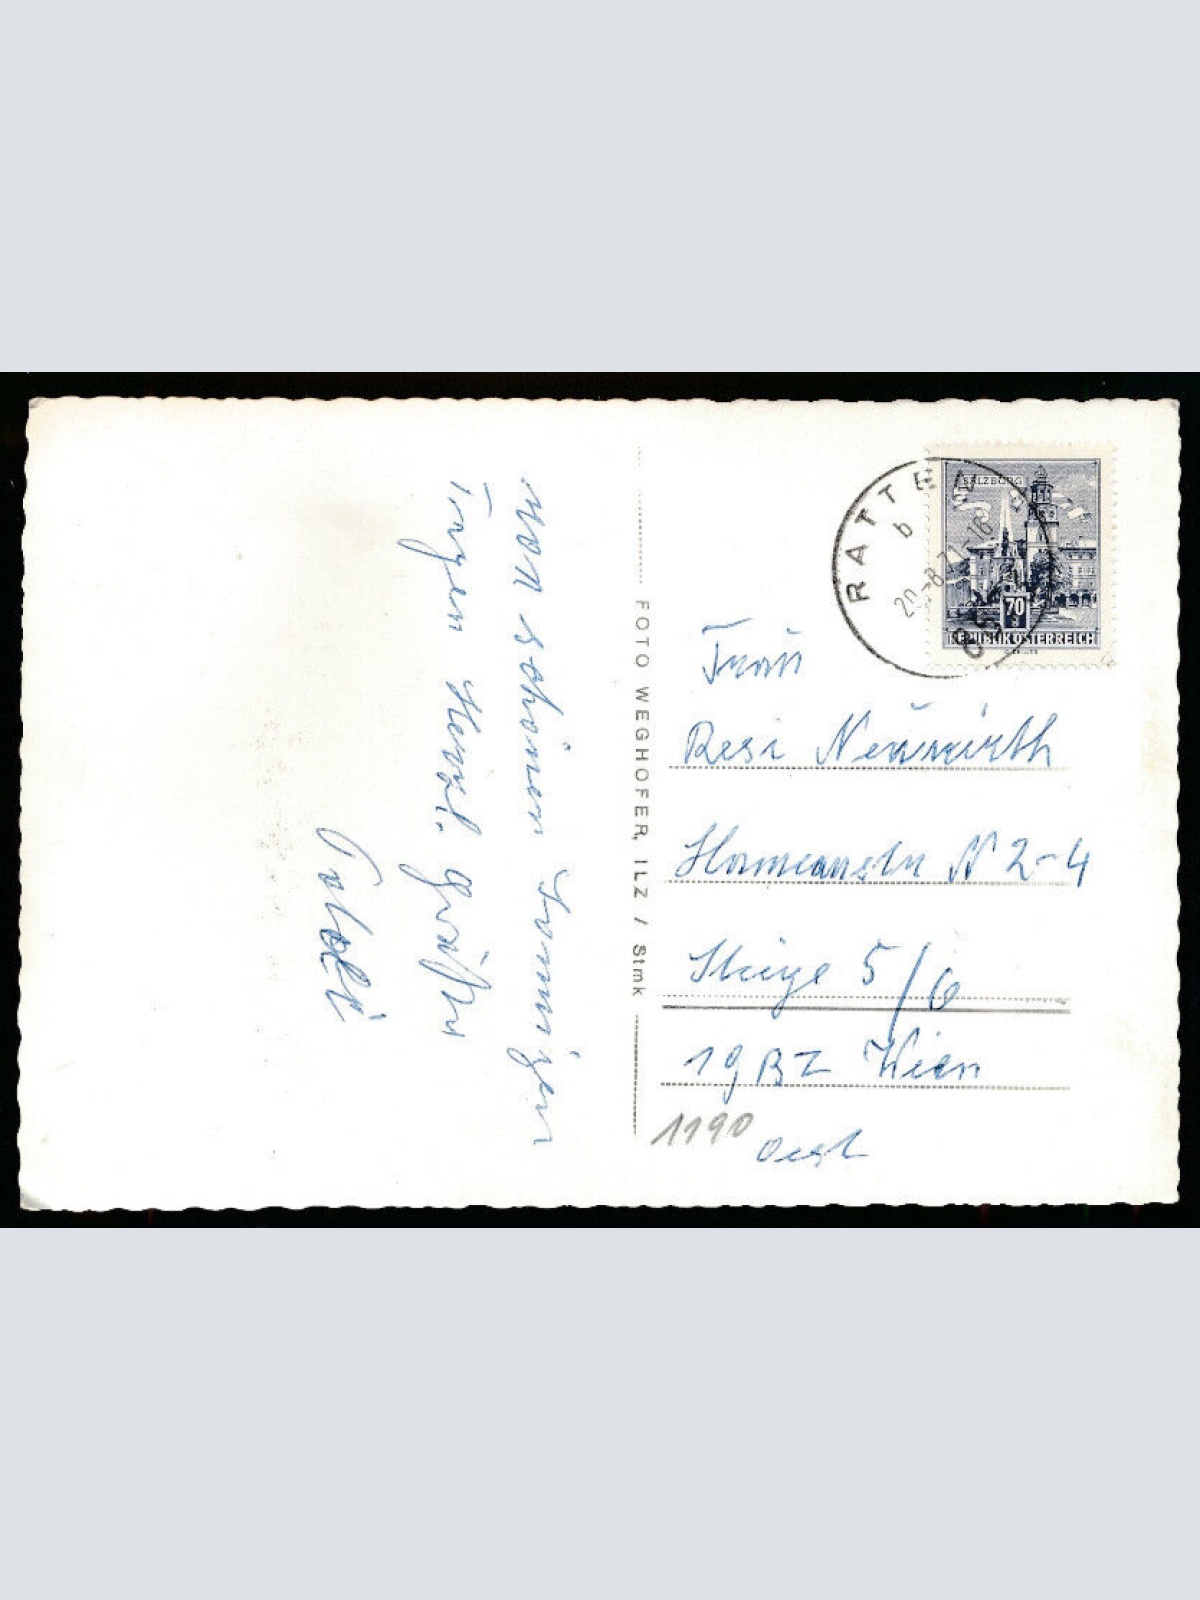 von schönen sonnigen
Tagen Herzl. grüße
Poldi
FOTO WEGHOFER, ILZ / Stmk
RATTEN
b
20.-8.71-16
SALZBURG
70
g
REPUBLIK ÖSTERREICH
Frau
Resi Neuwirth
N 2-4
Stiege 5/6
19 BZ Wien
1190